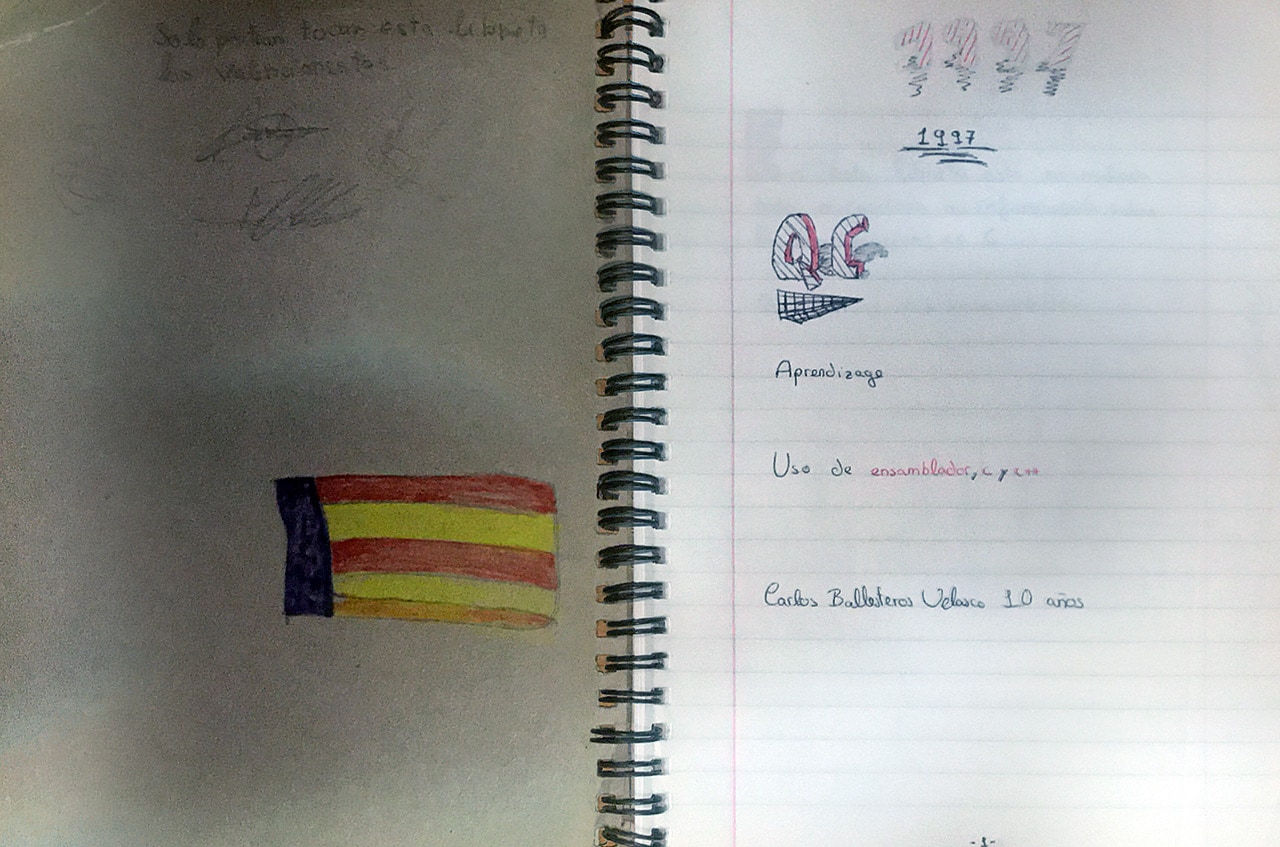 Solo podran tocar esta libreta
los
1997
1997
QC
Aprendizage
Uso de ensamblador, c y c++
Carlos Ballesteros Velasco 10 años
-1-